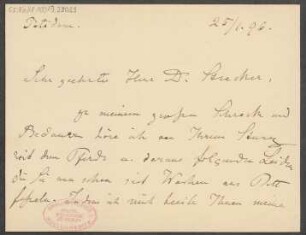 Potsdam.
25/1. 96.
Sehr geehrter Herr Dr.
zu meinem großen und
Bedauern höre ich von Ihrem Sturz
mit dem Pferde u. daraus folgenden Leiden
die Sie nun schon seit Wochen ans Bett
fesseln. Indem ich mich beeile Ihnen meine